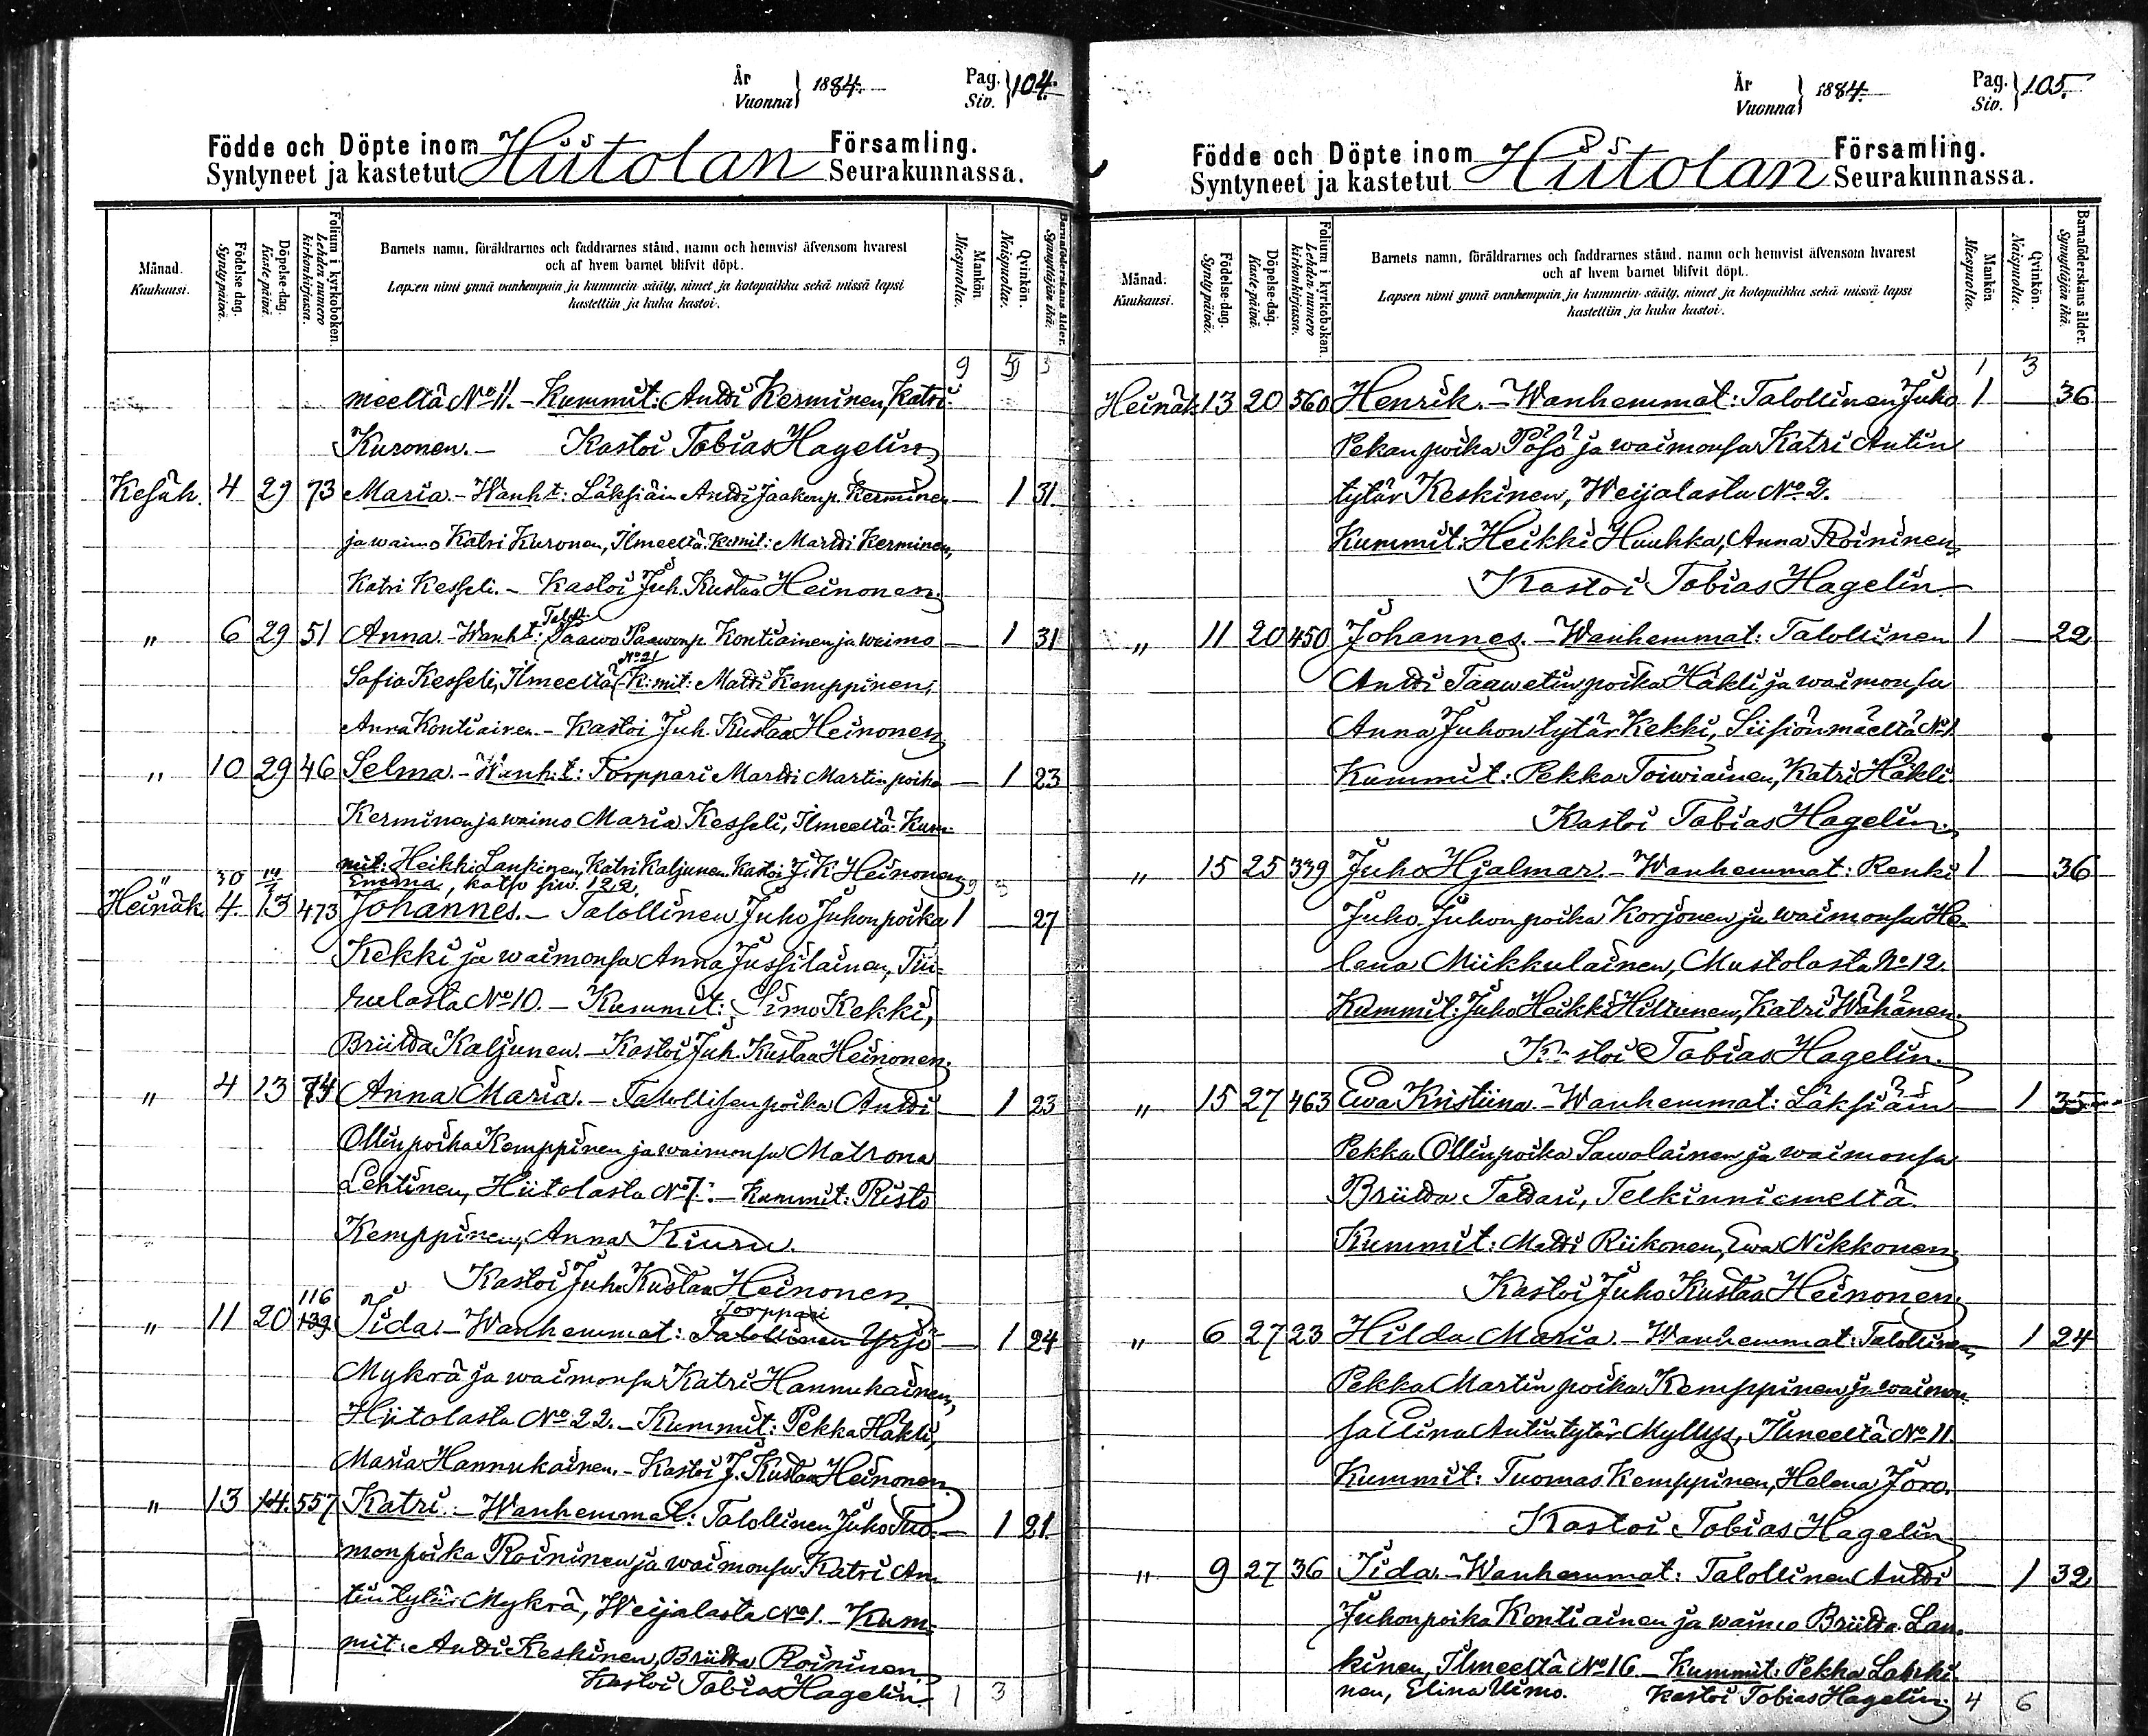 År
Vuonna } 1884.
Pag.
Siv. } 104.
Födde och Döpte inom Hiitolan Församling.
Syntyneet ja kastetut Seurakunnassa.
Månad.
Kuukausi.
Födelse dag.
Synty päivä.
Döpelse-dag.
Kaste-päivä.
Folium i kyrkoboken.
Lehden numero kirkonkirjassa.
Barnets namn, föräldrarnes och faddrarnes stånd, namn och hemvist äfvensom hvarest
och af hvem barnet blifvit döpt.
Lapsen nimi ynnä vanhempain ja kummein sääty, nimet ja kotopaikka sekä missä lapsi
kastettiin ja kuka kastoi.
Mankön.
Miespuolia.
Qvinkön.
Naispuolia.
Barnaföderskans ålder.
Synnyttäjän ikä.
9 5
meeltä No 11. - Kummit: Antti Kerminen, Katri
Kuronen. - Kastoi Tobias Hagelin
Kesäk. 4 29 73 Maria. - Wanht: Läksiäin Antti Jaakonp. Kerminen — 1 31
ja waimo Katri Kuronen, Ilmeeltä. K:mit: Martti Kerminen,
Katri Kesseli. - Kastoi Juh. Kustaa Heinonen.
Taloll.
" 6 29 51 Anna. - Wanht: Paawo Paawonp. Kontiainen ja waimo — 1 31
No 21
Sofia Kesseli, Ilmeeltä K:mit: Matti Kemppinen,
Anna Kontiainen. - Kastoi Juh. Kustaa Heinonen
" 10 29 46 Selma. - Wanh:t: Torppari Martti Martinpoika — 1 23
Kerminen ja waimo Maria Kesseli, Ilmeeltä. Kum-
mit: Heikki Lankinen, Katri Kaljunen. Kastoi J. K. Heinonen
" 30 14/7 Emma, katso siw. 122.
Heinäk. 4. 13 473 Johannes. - Talollinen Juho Juhonpoika 1 — 27
Kekki ja waimonsa Anna Jussilainen, Tiu-
rulasta No 10. - Kummit: Simo Kekki,
Briitta Kaljunen. - Kastoi Juh. Kustaa Heinonen.
" 4 13 74 Anna Maria. - Talollisen poika Antti — 1 23
Ollinpoika Kemppinen ja waimonsa Matrona
Lehtinen, Hiitolasta No 7. - Kummit: Risto
Kemppinen, Anna Kiuru.
Kastoi Juho Kustaa Heinonen.
116 Torppari
" 11 20 139 Iida. - Wanhemmat: Talollinen Yrjö — 1 24
Mykrä ja waimonsa Katri Hannukainen,
Hiitolasta No 22. - Kummit: Pekka Häkli,
Maria Hannukainen. - Kastoi J. Kustaa Heinonen.
" 13 14. 557 Katri. - Wanhemmat: Talollinen Juho Tuo- — 1 21
monpoika Roininen ja waimonsa Katri An-
tintytär Mykrä, Weijalasta No 1. - Kum-
mit: Antti Keskinen, Briitta Roininen.
Kastoi Tobias Hagelin. 1 3
År
Vuonna } 1884.
Pag.
Siv. } 105.
Födde och Döpte inom Hiitolan Församling.
Syntyneet ja kastetut Seurakunnassa.
Månad.
Kuukausi.
Födelse-dag.
Synty päivä.
Döpelse-dag.
Kaste päivä.
Folium i kyrkoboken.
Lehden numero kirkonkirjassa.
Barnets namn, föräldrarnes och faddrarnes stånd, namn och hemvist äfvensom hvarest
och af hvem barnet blifvit döpt.
Lapsen nimi ynnä vanhempain ja kummein sääty, nimet ja kotopaikka sekä missä lapsi
kastettiin ja kuka kastoi.
Mankön
Miespuolia.
Qvinkön.
Naispuolia.
Barnaföderskans ålder.
Synnyttäjän ikä.
1 3
Heinäk. 13 20 560 Henrik. - Wanhemmat: Talollinen Juho 1 — 36
Pekanpoika Pösö ja waimonsa Katri Antin
tytär Keskinen, Weijalasta No 2.
Kummit: Heikki Huuhka, Anna Roininen,
Kastoi Tobias Hagelin
" 11 20 450 Johannes. - Wanhemmat: Talollinen 1 — 22
Antti Taawetinpoika Häkli ja waimonsa
Anna Juhontytär Kekki, Siisiönmäeltä No 1
Kummit: Pekka Toiwiainen, Katri Häkli.
Kastoi Tobias Hagelin.
" 15 25 339 Juho Hjalmar. - Wanhemmat: Renki 1 — 36
Juho Juhonpoika Korjonen ja waimonsa He-
lena Miikkulainen, Mustolasta No 12.
Kummit: Juho Heikki Hiltunen, Katri Wähänen.
Kastoi Tobias Hagelin.
" 15 27 463 Ewa Kristiina. - Wanhemmat: Läksiäin — 1 35
Pekka Ollinpoika Sawolainen ja waimonsa
Briitta Tattari, Telkinniemeltä.
Kummit: Matti Riikonen, Ewa Nikkonen
Kastoi Juho Kustaa Heinonen,
" 6 27 23 Hilda Maria. - Wanhemmat: Talollinen 1 24
Pekka Martinpoika Kemppinen ja waimon-
sa Elina Antintytär Myllys, Ilmeeltä No 11.
Kummit: Tuomas Kemppinen, Helena Joro.
Kastoi Tobias Hagelin
" 9 27 36 Iida. - Wanhemmat: Talollinen Antti — 1 32
Juhonpoika Kontiainen ja waimo Briitta Lan-
kinen, Ilmeeltä No 16. - Kummit: Pekka Lanki-
nen, Elina Uimo. Kastoi Tobias Hagelin. 4 6